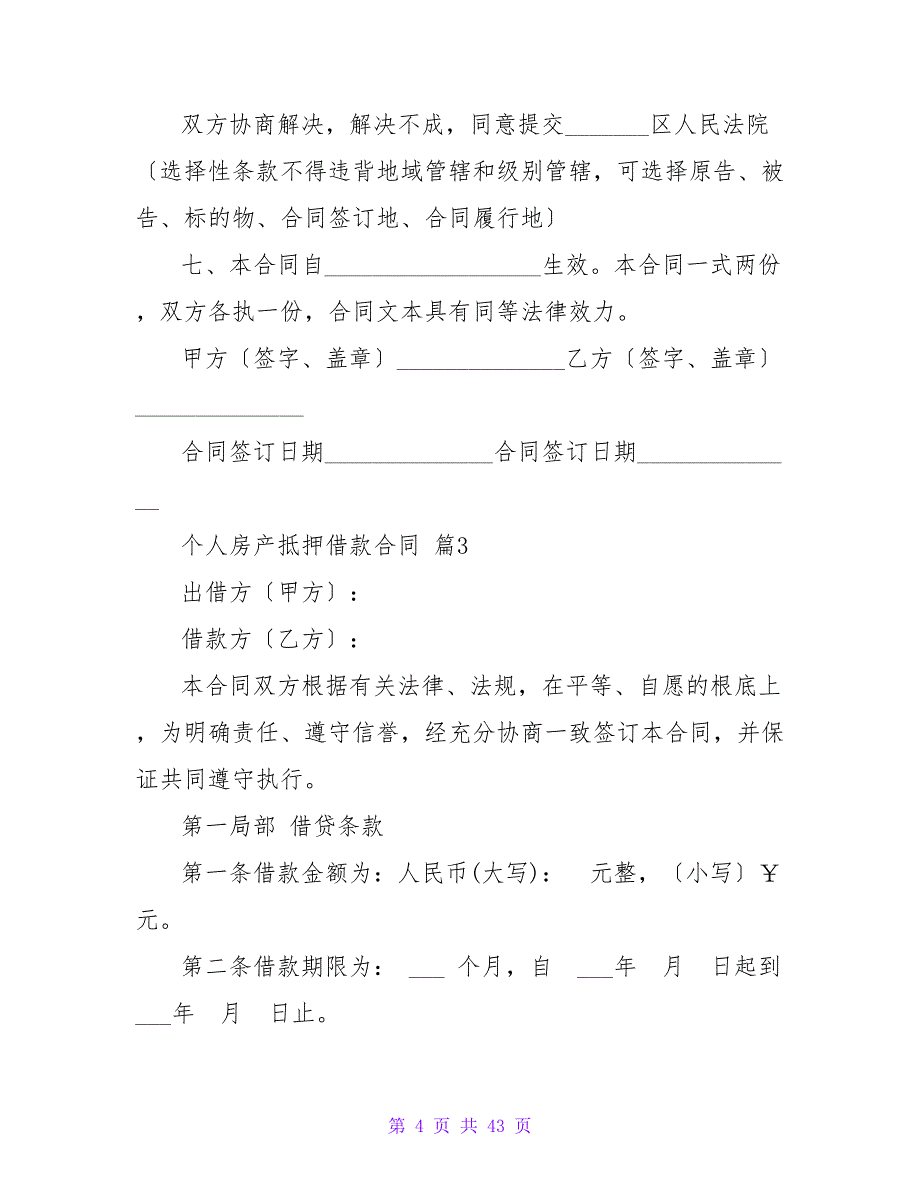 双方协商解决，解决不成，同意提交_______区人民法院
〔选择性条款不得违背地域管辖和级别管辖，可选择原告、被
告、标的物、合同签订地、合同履行地〕
七、本合同自__________________生效。本合同一式两份
，双方各执一份，合同文本具有同等法律效力。
甲方〔签字、盖章〕______________乙方〔签字、盖章〕
______________
合同签订日期______________合同签订日期____________
__
个人房产抵押借款合同 篇3
出借方〔甲方〕：
借款方〔乙方〕：
本合同双方根据有关法律、法规，在平等、自愿的根底上
，为明确责任、遵守信誉，经充分协商一致签订本合同，并保
证共同遵守执行。
第一局部 借贷条款
第一条借款金额为：人民币(大写)： 元整，〔小写〕￥
元。
第二条借款期限为： ___ 个月，自 ___年 月 日起到
___年 月 日止。
第 4 页 共 43 页